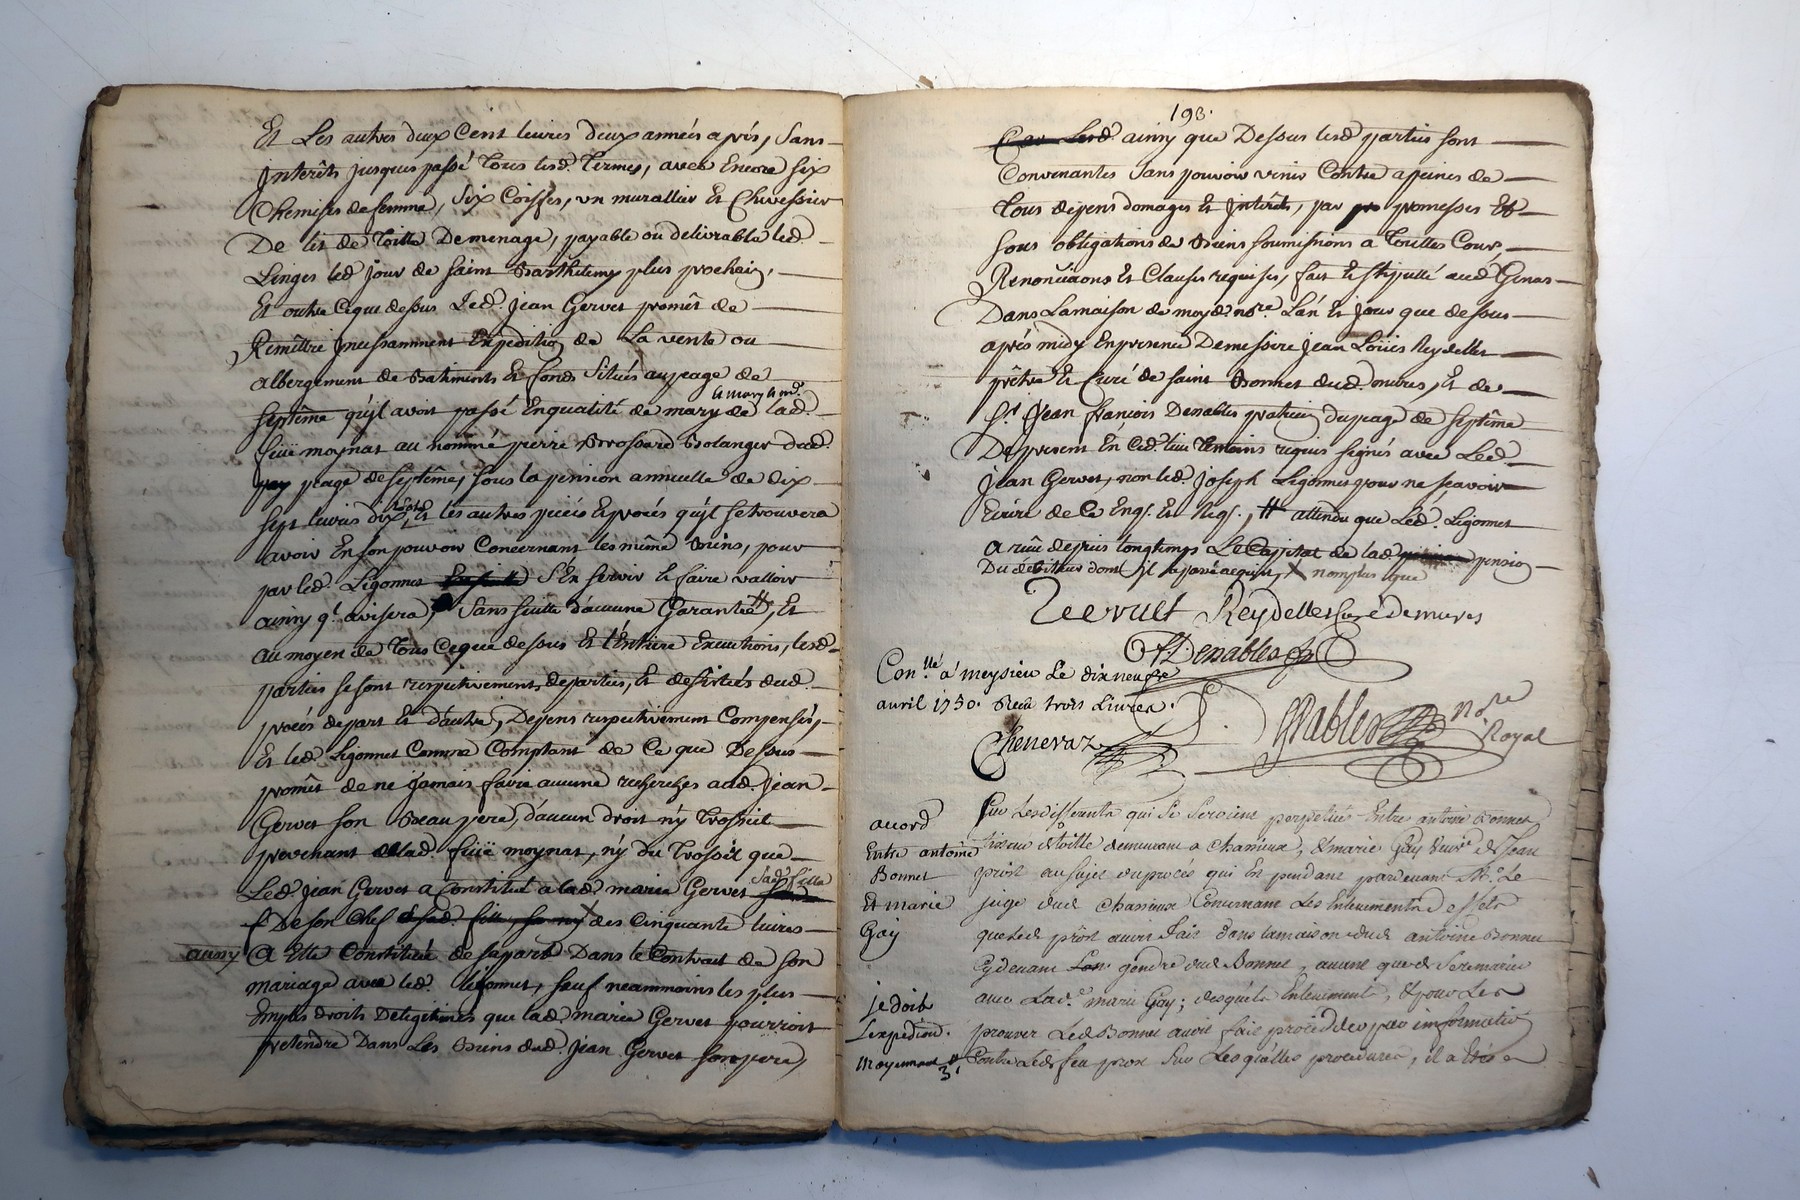 Et Les autres deux Cent livres deux années après, Sans
Interêts jusques passé Tous lesd. Termes, avec Encore six
Chemises de femme, Six Coiffes, un murallier Et Chevessier
De lit de Toille De menage, payable ou delivrable led.
Linges led. jour de saint Barthelemy plus prochain,
Et outre Ceque dessus Led. Jean Gervet promêt de
Remêttre Incessamment Expedition de La vente ou
albergement de Batiments Et fonds Situés au peage de
septême qu'il avoit passé En qualité de mary de lad.
feüe moynat au nommé pierre Brossard Bolanger dud.
peage de septême, sous la pension annuelle de dix
sept livres dix sols, Et les autres pieces Et procés qu'il se trouvera
avoir En son pouvoir Concernant les même Biens, pour
par led. Ligonnet S'En servir Et faire valloir
ainsy q. avisera, Sans suitte d'aucune Garantie #, Et
au moyen de Tous Ceque dessus Et l'Entiere Execution, lesd.
parties se sont respectivement departies, Et desistées dud.
procés de part Et d'autre, Depens respectivement Compensés,
Et led. Ligonnet Comme Comptant de Ce que Dessus
promêt de ne jamais faire aucune recherches aud. Jean
Gervet son Beau pere, d'aucun droit n'y Trossel
provenant de lad. feüe moynat, n'y du Trossel que
Led. Jean Gervet a Constitué a lad. marie Gervet sad. fille
De son Chef des Cinquante livres
ainsy a Elle Constitué de sa part Dans le Contrat de son
mariage avec led. Ligonnet, sauf neammoins les plus
amples droits De legitimes que lad. marie Gervet pourroit
pretendre Dans Les Biens dud. Jean Gervet son pere,
193.
ainsy que Dessus lesd. parties sont
Convenantes Sans pouvoir venir Contre a peines de
Tous depens domages Et Interêts, par promesses Et
sous obligations de Biens soumissions a Touttes Cour
Renonciaons Et Clauses requises, fait Et stipullé aud. Genas
Dans La maison de moyd. nore. L'an Et jour que dessus
après midy En presence De messire Jean Loüis Reydellet
prêtre Et Curé de saint Bonnet dud. mures, Et de
Sr. Jean françois Denables praticien du peage de septême
De present En Ced. lieu temoins requis signés avec Led.
Jean Gervet, non led. Joseph Ligonnet pour ne sçavoir
Ecrire de Ce Enq. Et Req., # attendu que Led. Ligonnet
a reçu depuis longtemps Le Capital de lad. pension
Du debiteur dont il a passé acquit,
Reydellet Curé de mures
Denables
Con.llé á meysieu Le dix neuf
avril 1730. Reçu trois Livres.
Chenevaz
Nables Nore
Royal
acord
Entre antoine
Bonnet
Et marie
Gay
je dois
L'expedion.
moyennant 3#
Sur Les differents qui Se Seroient Entre antoine Bonnet
tixeur de toille demeurant a Chassieux, & marie Gay veuve de Jean
prost au sujet du procès qui Est pendant pardevant Mr. Le
juge dud Chassieux Concernant Les Enlevements d'effets
que Led prost auroit fait dans la maison dud antoine Bonnet
Cydevant gendre dud Bonnet, avant que de Se remarier
avec Lad.e marie Gay; desquels Enlevement, & pour Les
prouver Led Bonnet auroit fait procedder par information
Contre Led feu prost Sur Lesquelles procedures, il a Etés